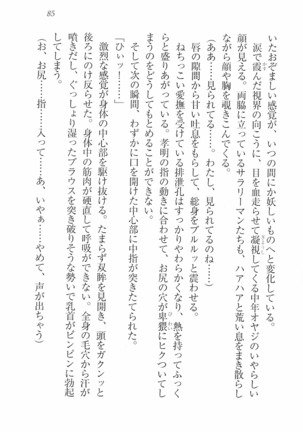 85
いたおぞましい感覚が、いつの間にか妖しいものへと変化している。
涙で霞んだ視界の向こうに、目を血走らせて凝視してくる中年オヤジのいやらしい
顔が見える。両脇に立っているサラリーマンたちも、ハァハァと荒い息をまき散らし
ながら顔や胸を覗きこんでくる。
（ああ……見られてる……わたし、見られてるのね……）
唇の隙間から甘い吐息をもらして、総身をブルルッと震わせる。
ねちっこい愛撫を受けている排泄孔はすっかりやわらかくなり、熱を持ってふっく
らと盛りあがっている。孝明の指の動きに合わせて、お尻の穴が卑猥にヒクついてし
まうのをどうしてもとめることができない。
そして次の瞬間、わずかに口を開けた中心部に中指が突きたてられた。
「ひぃッ！……」
激烈な感覚が身体の中心部を駆け抜ける。たまらず双眸を見開き、頭をガクンッと
後ろにのけ反らせた。身体中の筋肉が硬直して呼吸ができない。全身の毛穴から汗が
噴きだし、ぐっしょり湿ったブラウスを突き破りそうな勢いで乳首がビンビンに勃起
してしまう。
（お、お尻……指……入って……あ、いやぁ……やめて、声が出ちゃう）